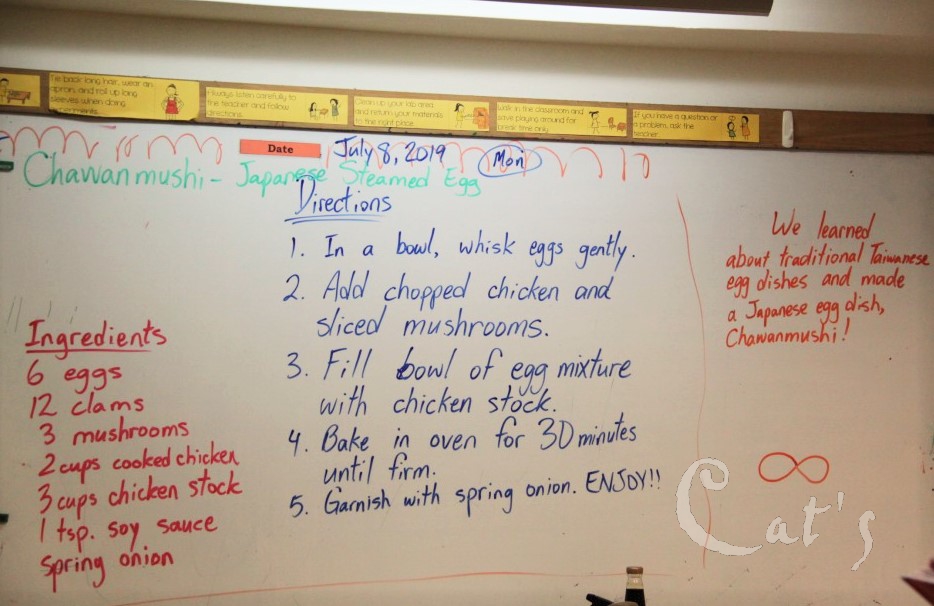 Tie back long hair, wear an
apron, and roll up long
sleeves when doing
Always listen carefully to
the teacher and follow
directions.
Clean up your lab area
and return your materials
to the right place.
Walk in the classroom and
save playing around for
break time only.
If you have a question or
a problem, ask the
teacher.
Date
July 8, 2019 Mon
Chawanmushi - Japanese Steamed Egg
Ingredients
6 eggs
12 clams
3 mushrooms
2 cups cooked chicken
3 cups chicken stock
1 tsp. soy sauce
spring onion
Directions
1. In a bowl, whisk eggs gently.
2. Add chopped chicken and
sliced mushrooms.
3. Fill bowl of egg mixture
with chicken stock.
4. Bake in oven for 30 minutes
until firm.
5. Garnish with spring onion. ENJOY!!
We learned
about traditional Taiwanese
egg dishes and made
a Japanese egg dish,
Chawanmushi!
Cat's